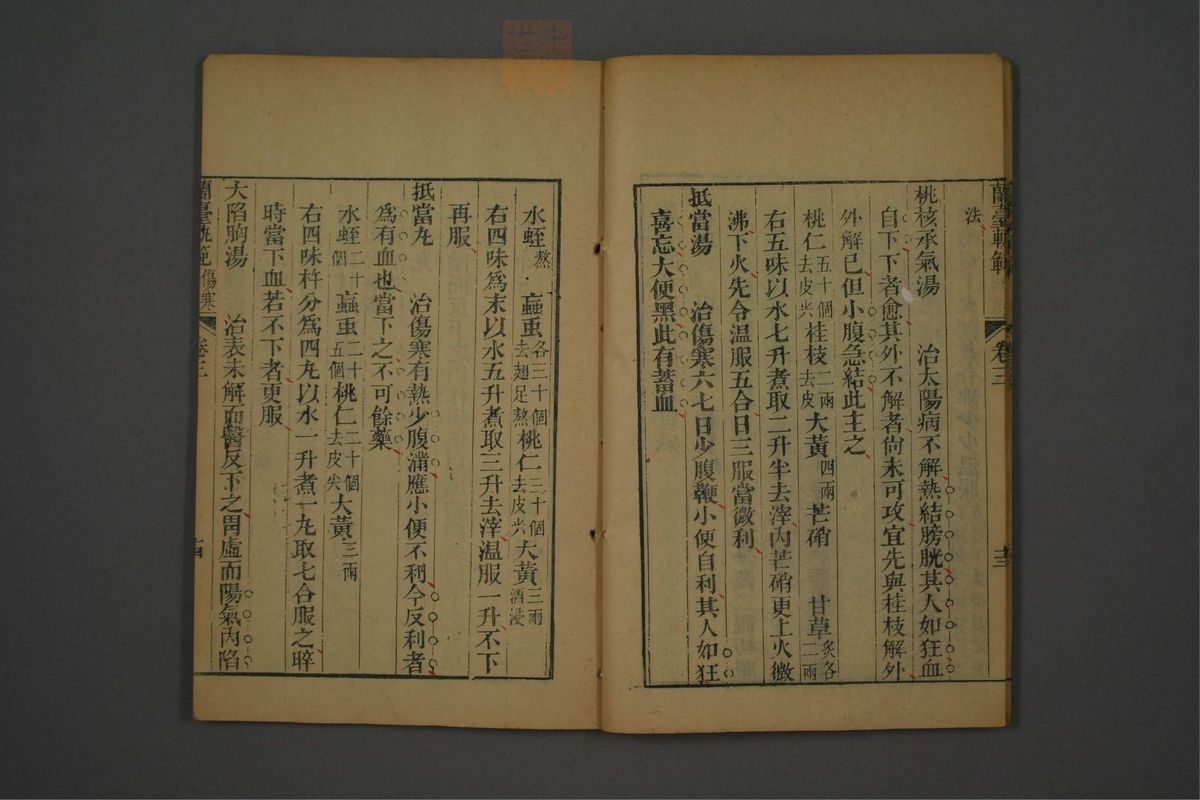 蘭臺軌範
卷三
十三
法
桃核承氣湯　治太陽病不解熱結膀胱其人如狂血
自下下者愈其外不解者尙未可攻宜先與桂枝解外
外解已但小腹急結此主之
桃仁五十個去皮尖桂枝二兩去皮大黃四兩芒硝　甘草炙各二兩
右五味以水七升煮取二升半去滓內芒硝更上火微
沸下火先令温服五合日三服當微利
抵當湯　治傷寒六七日少腹鞕小便自利其人如狂
喜忘大便黑此有蓄血
水蛭熬　䖟虫各三十個去翅足熬桃仁三十個去皮尖大黃三兩酒浸
右四味爲末以水五升煮取三升去滓温服一升不下
再服
抵當丸　治傷寒有熱少腹滿應小便不利今反利者
爲有血也當下之不可餘藥
水蛭二十個䖟虫二十五個桃仁二十個去皮尖大黃三兩
右四味杵分爲四丸以水一升煮一丸取七合服之晬
時當下血若不下者更服
大陷胸湯　治表未解而醫反下之胃虛而陽氣內陷
蘭臺軌範傷寒
卷三
十四